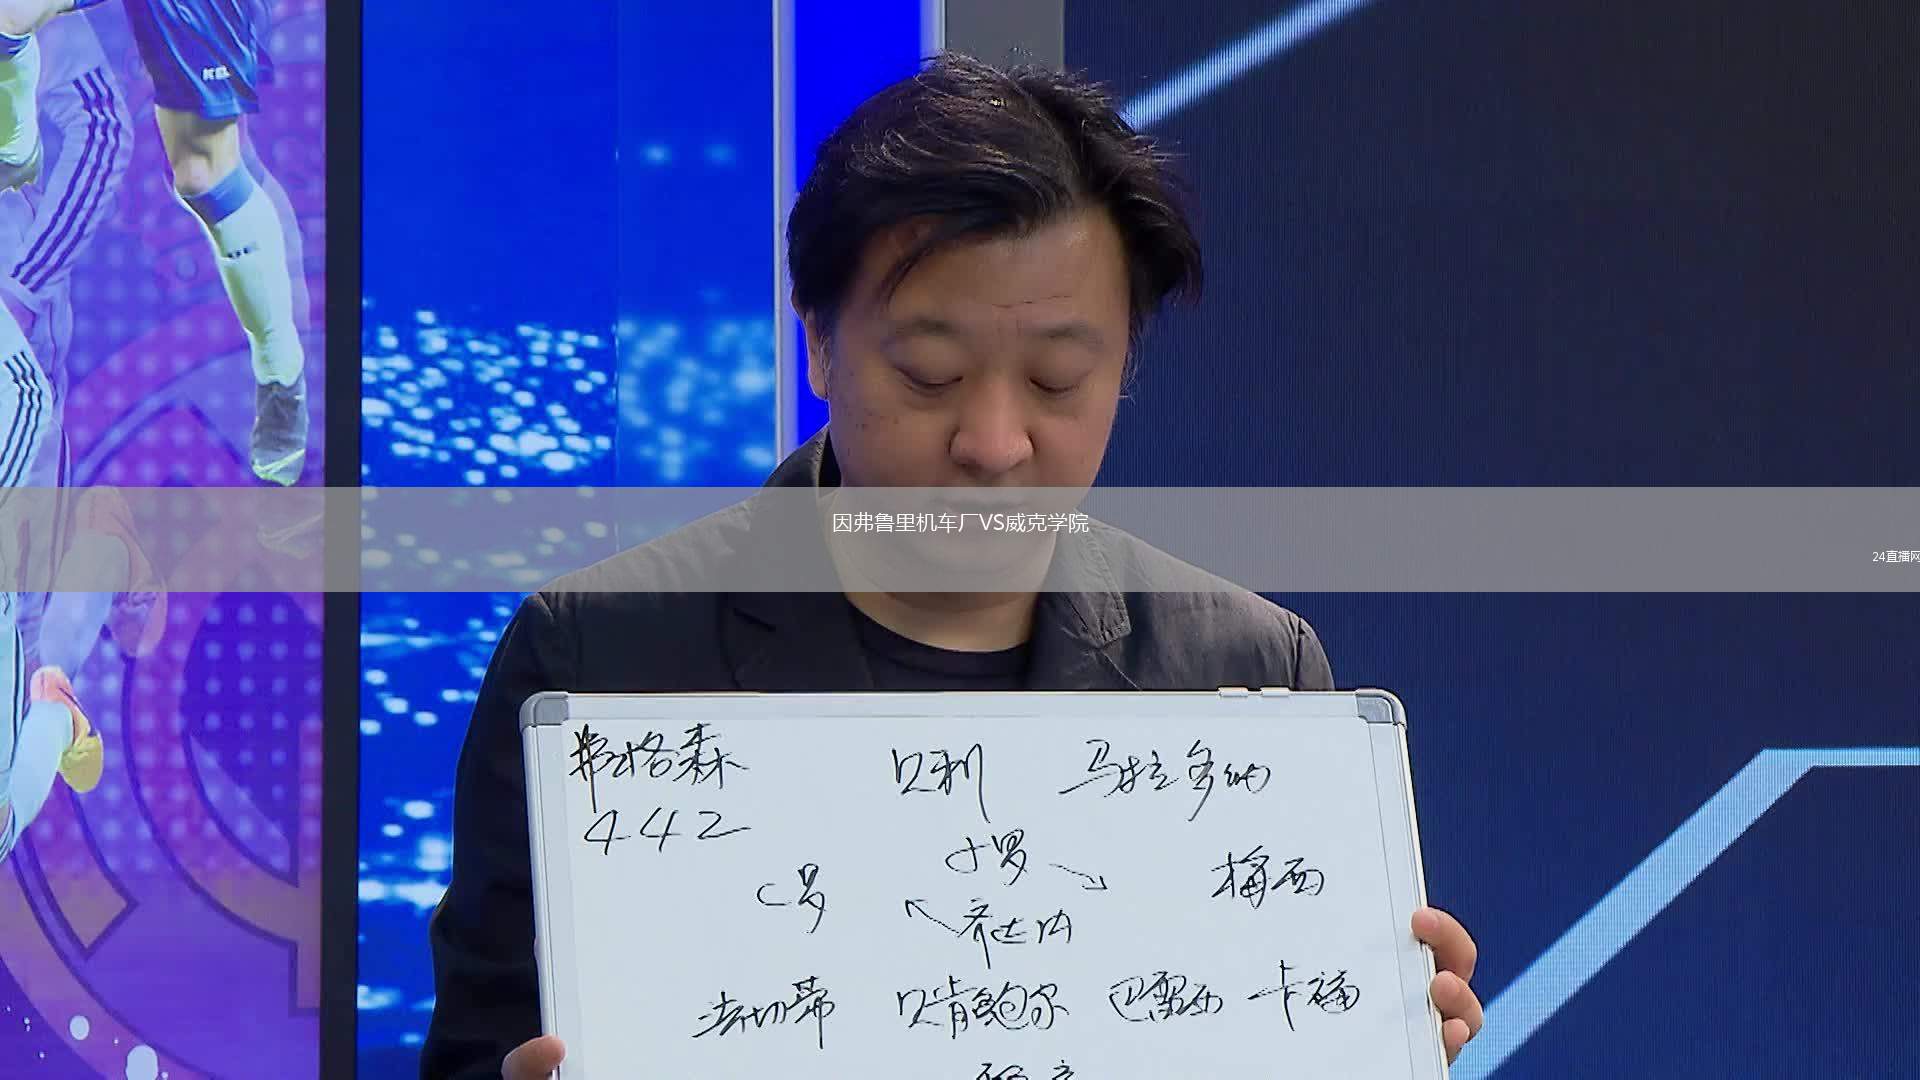 因弗鲁里机车厂VS威克学院
24直播网
弗格森 贝利 马拉多纳
442
小罗
C罗 梅西
齐达内
法切蒂 贝肯鲍尔 巴雷西 卡福